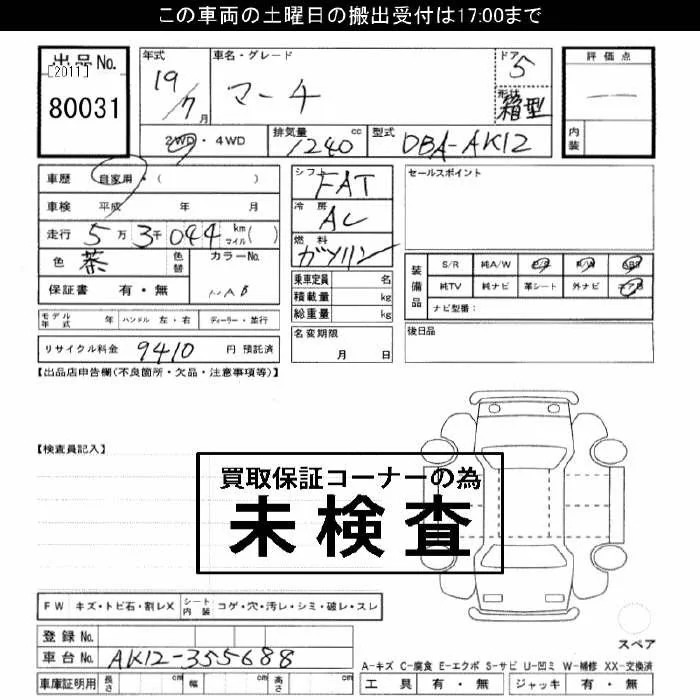 この車両の土曜日の搬出受付は17:00まで
出品No.
[2011]
80031
年式 車名・グレード ドア 形状
19/7月 マーチ 5 箱型
2WD・4WD 排気量 1240 cc 型式 DBA-AK12
評価点
—
内装
車歴 自家用・( )
車検 平成 年 月
走行 5万3千044 km マイル( )
色 茶 色替 カラーNo.
保証書 有・無
シフト FAT
冷房 AC
燃料 ガソリン
乗車定員 名
積載量 kg
総重量 kg
セールスポイント
装備品 S/R 純A/W P/S P/W ABS
純TV 純ナビ 革シート 外ナビ エアB
ナビ型番:
モデル年式 年 ハンドル 左・右 ディーラー・並行
名変期限 月 日
後日品
リサイクル料金 9410 円 預託済
【出品店申告欄(不良箇所・欠品・注意事項等)】
【検査員記入】
買取保証コーナーの為
未検査
FW キズ・トビ石・割レX シート内装 コゲ・穴・汚レ・シミ・破レ・スレ
登録No.
車台No. AK12-355688
車庫証明用 長さ cm 幅 cm 高さ cm
スペア
A-キズ C-腐食 E-エクボ S-サビ U-凹ミ W-補修 XX-交換済
工具 有・無 ジャッキ 有・無